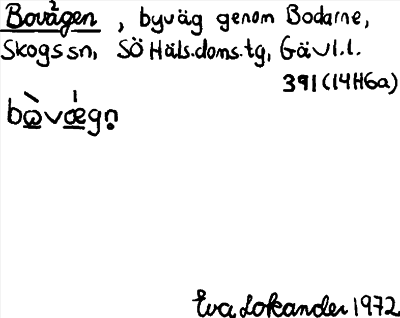 Bovägen, byväg genom Bodarne,
Skogs sn, SÖ Häls.doms.tg, Gävl.l.
391(14H6a)
bòvǽgn̥
Eva Lokander 1972